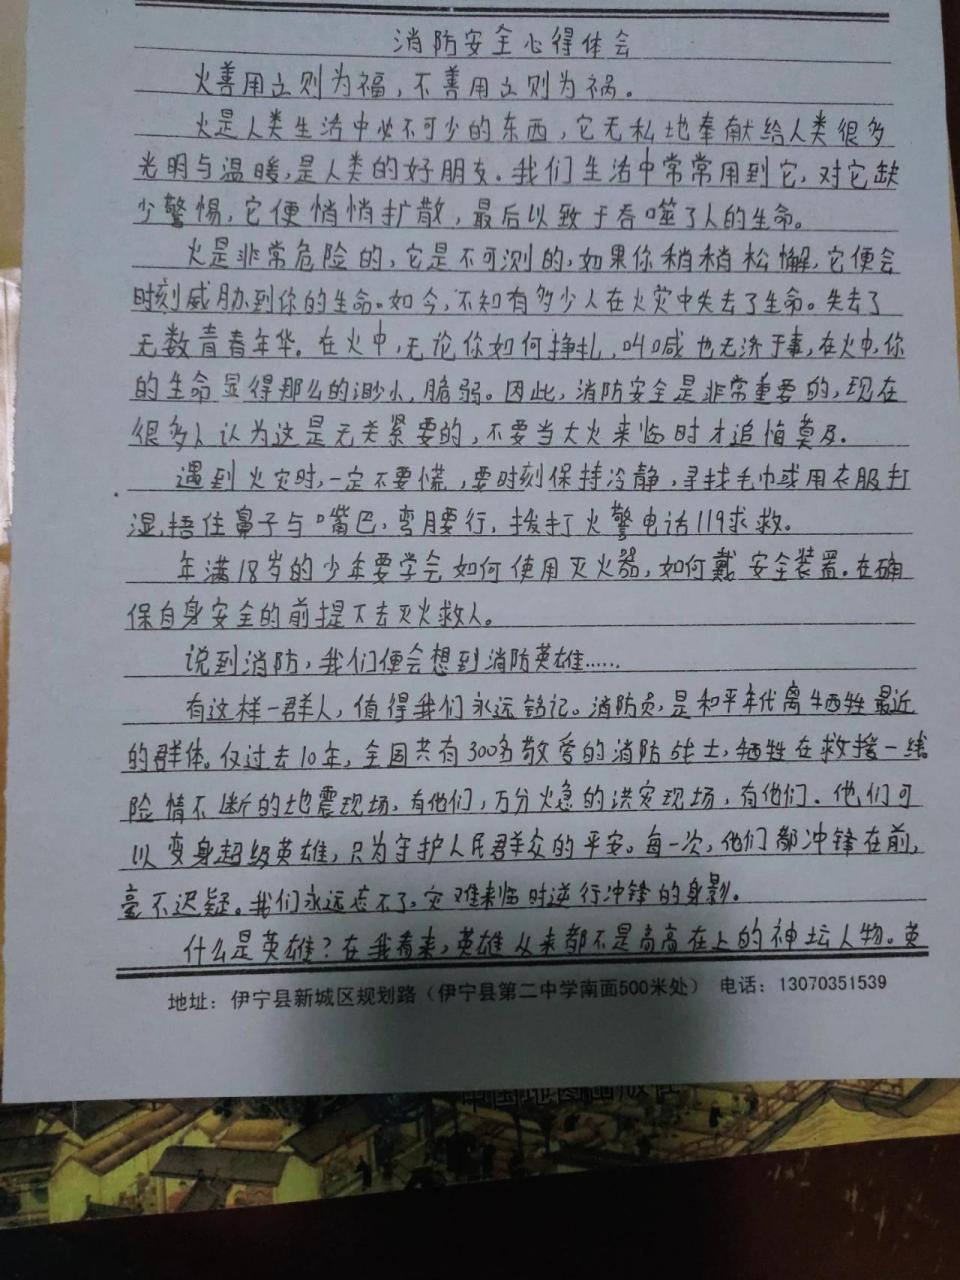 消防安全心得体会
火善用之则为福，不善用之则为祸。
火是人类生活中必不可少的东西，它无私地奉献给人类很多
光明与温暖，是人类的好朋友。我们生活中常常用到它，对它缺
少警惕，它便悄悄扩散，最后以致于吞噬了人的生命。
火是非常危险的，它是不可测的，如果你稍稍松懈，它便会
时刻威胁到你的生命。如今，不知有多少人在火灾中失去了生命。失去了
无数青春年华。在火中，无论你如何挣扎，叫喊也无济于事，在火中，你
的生命显得那么的渺小，脆弱。因此，消防安全是非常重要的，现在
很多人认为这是无关紧要的，不要当大火来临时才追悔莫及。
遇到火灾时，一定不要慌，要时刻保持冷静，寻找毛巾或用衣服打
湿，捂住鼻子与嘴巴，弯腰行，拨打火警电话119求救。
年满18岁的少年要学会如何使用灭火器，如何戴安全装置。在确
保自身安全的前提下去灭火救人。
说到消防，我们便会想到消防英雄……
有这样一群人，值得我们永远铭记。消防员，是和平年代离牺牲最近
的群体。仅过去10年，全国共有300名敬爱的消防战士，牺牲在救援一线
险情不断的地震现场，有他们，万分火急的洪灾现场，有他们。他们可
以变身超级英雄，只为守护人民群众的平安。每一次，他们都冲锋在前，
毫不迟疑。我们永远忘不了，灾难来临时逆行冲锋的身影。
什么是英雄？在我看来，英雄从来都不是高高在上的神坛人物。英
地址：伊宁县新城区规划路（伊宁县第二中学南面500米处） 电话：13070351539
中国地图出版社